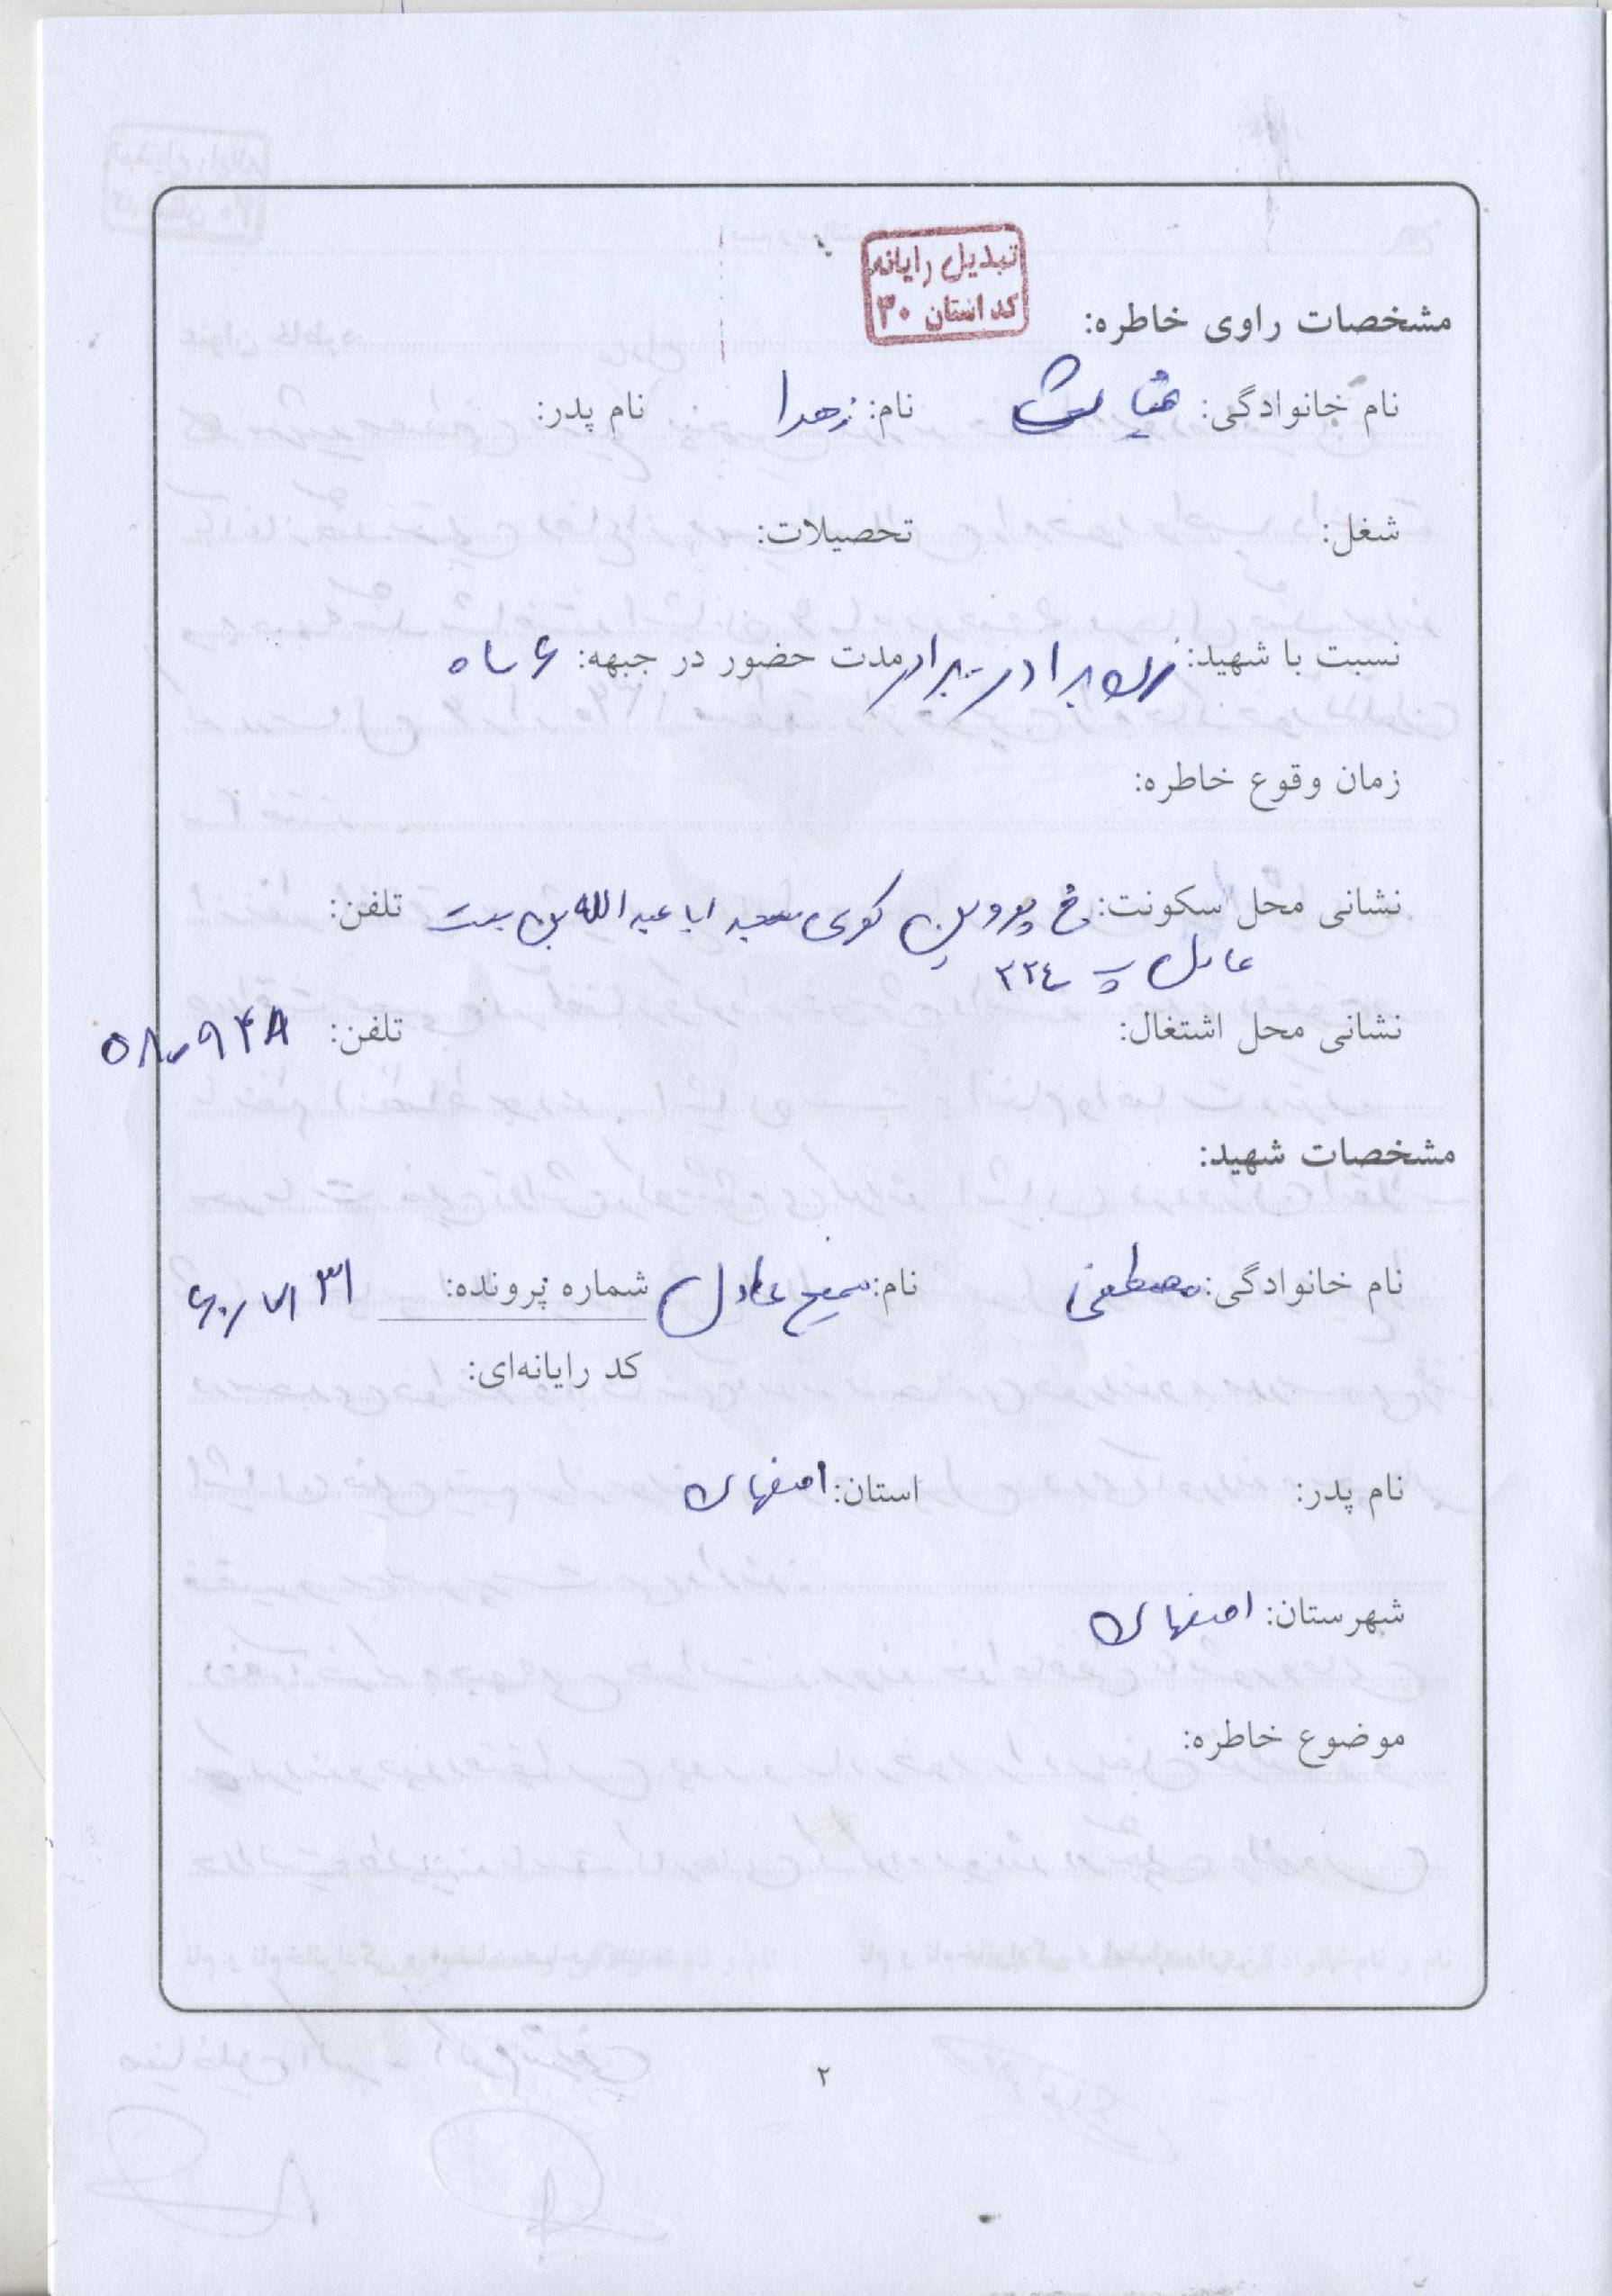 تبدیل رایانه
کد استان ۳۰
مشخصات راوی خاطره:
نام خانوادگی: نام: زهرا نام پدر:
شغل: تحصیلات:
نسبت با شهید: زن برادر - برادر مدت حضور در جبهه: ۶ ماه
زمان وقوع خاطره:
نشانی محل سکونت: خ پروین کوی مسجد ابا عبدالله بن بست تلفن:
عادل پ ۲۲۴
نشانی محل اشتغال: تلفن:
مشخصات شهید:
نام خانوادگی: مصطفی نام: سمیع عادل شماره پرونده: ۶۰۰۷۱۳۱
کد رایانه‌ای:
نام پدر: استان: اصفهان
شهرستان: اصفهان
موضوع خاطره:
۲